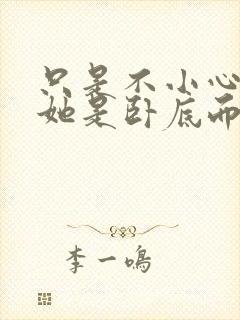 只是不小心
她是卧底而
李一鸣